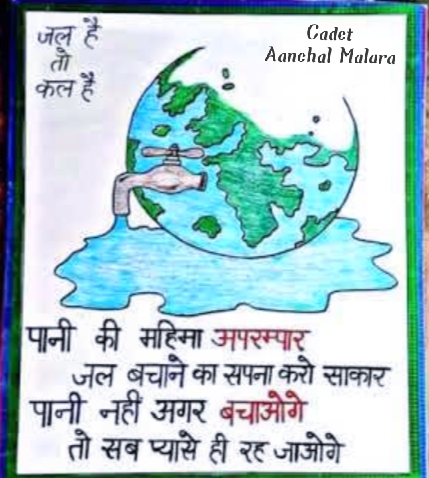 जल है
तो
कल है
Cadet
Aanchal Malara
पानी की महिमा अपरम्पार
जल बचाने का सपना करो साकार
पानी नही अगर बचाओगे
तो सब प्यासे ही रह जाओगे